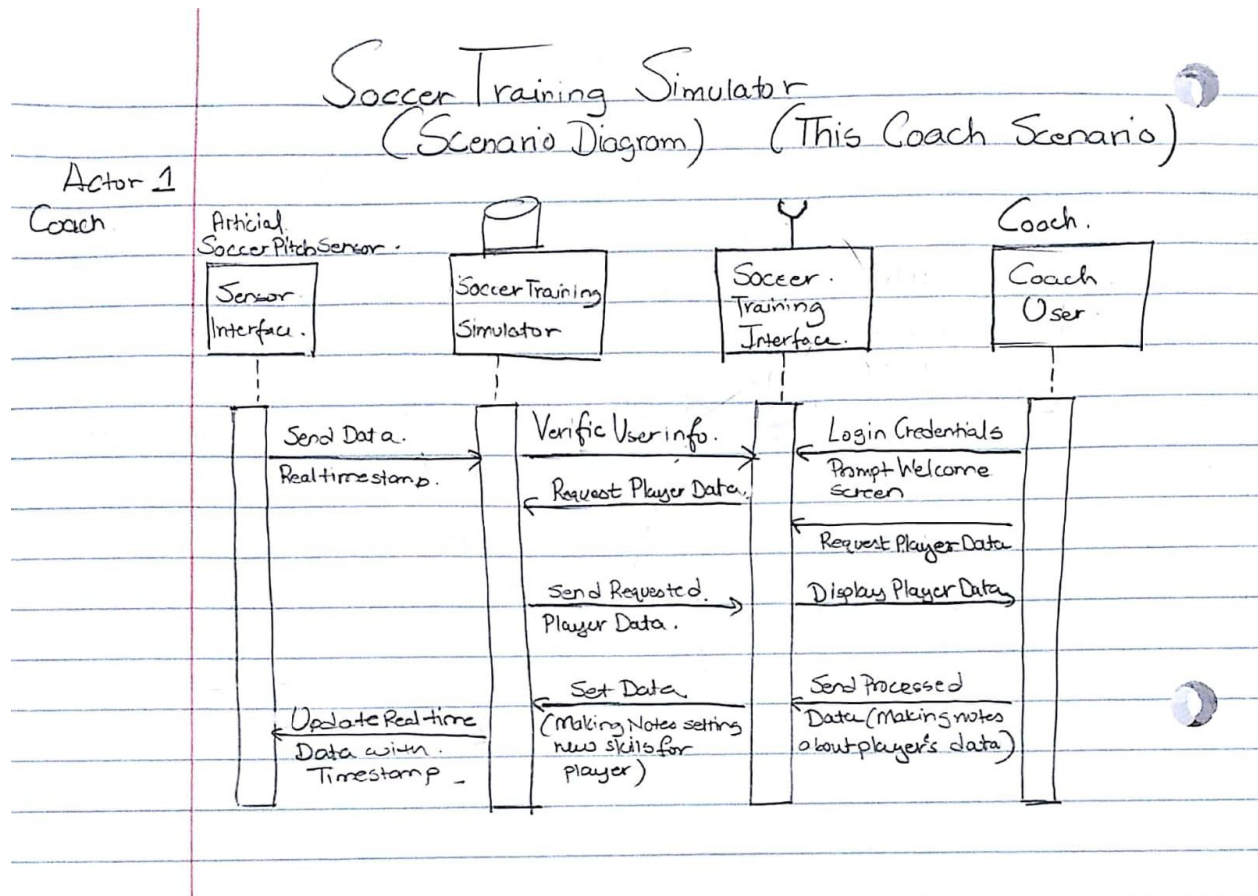 Soccer Training Simulator
(Scenario Diagram) (This Coach Scenario)
Actor 1
Coach
Articial
Soccer Pitch Sensor.
Coach.
Sensor
Interface.
Soccer Training
Simulator
Soccer.
Training
Interface.
Coach
User.
Send Data.
Realtimestamp.
Verific User info.
Login Credentials
Prompt Welcome
screen
Request Player Data.
Request Player Data
Send Requested.
Player Data.
Display Player Data
Set Data
(Making Notes setting
new skills for
player)
Send Processed
Data (Making notes
about player's data)
Update Real-time
Data with.
Timestamp -